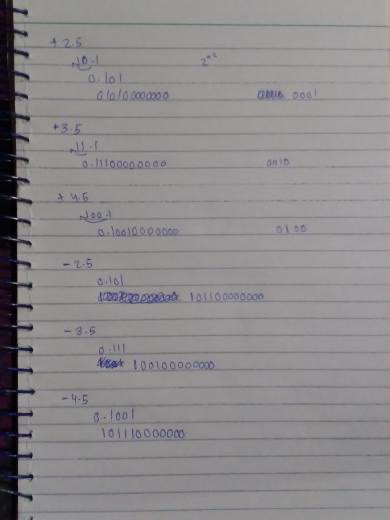 + 2.5
10.1 2^n-2
0.101
01010000000 0001
+3.5
11.1
0.11100000000 0010
+ 4.5
100.1
0.10010000000 0100
- 2.5
0.101
101100000000
- 3.5
0.111
100100000000
- 4.5
0.1001
101110000000